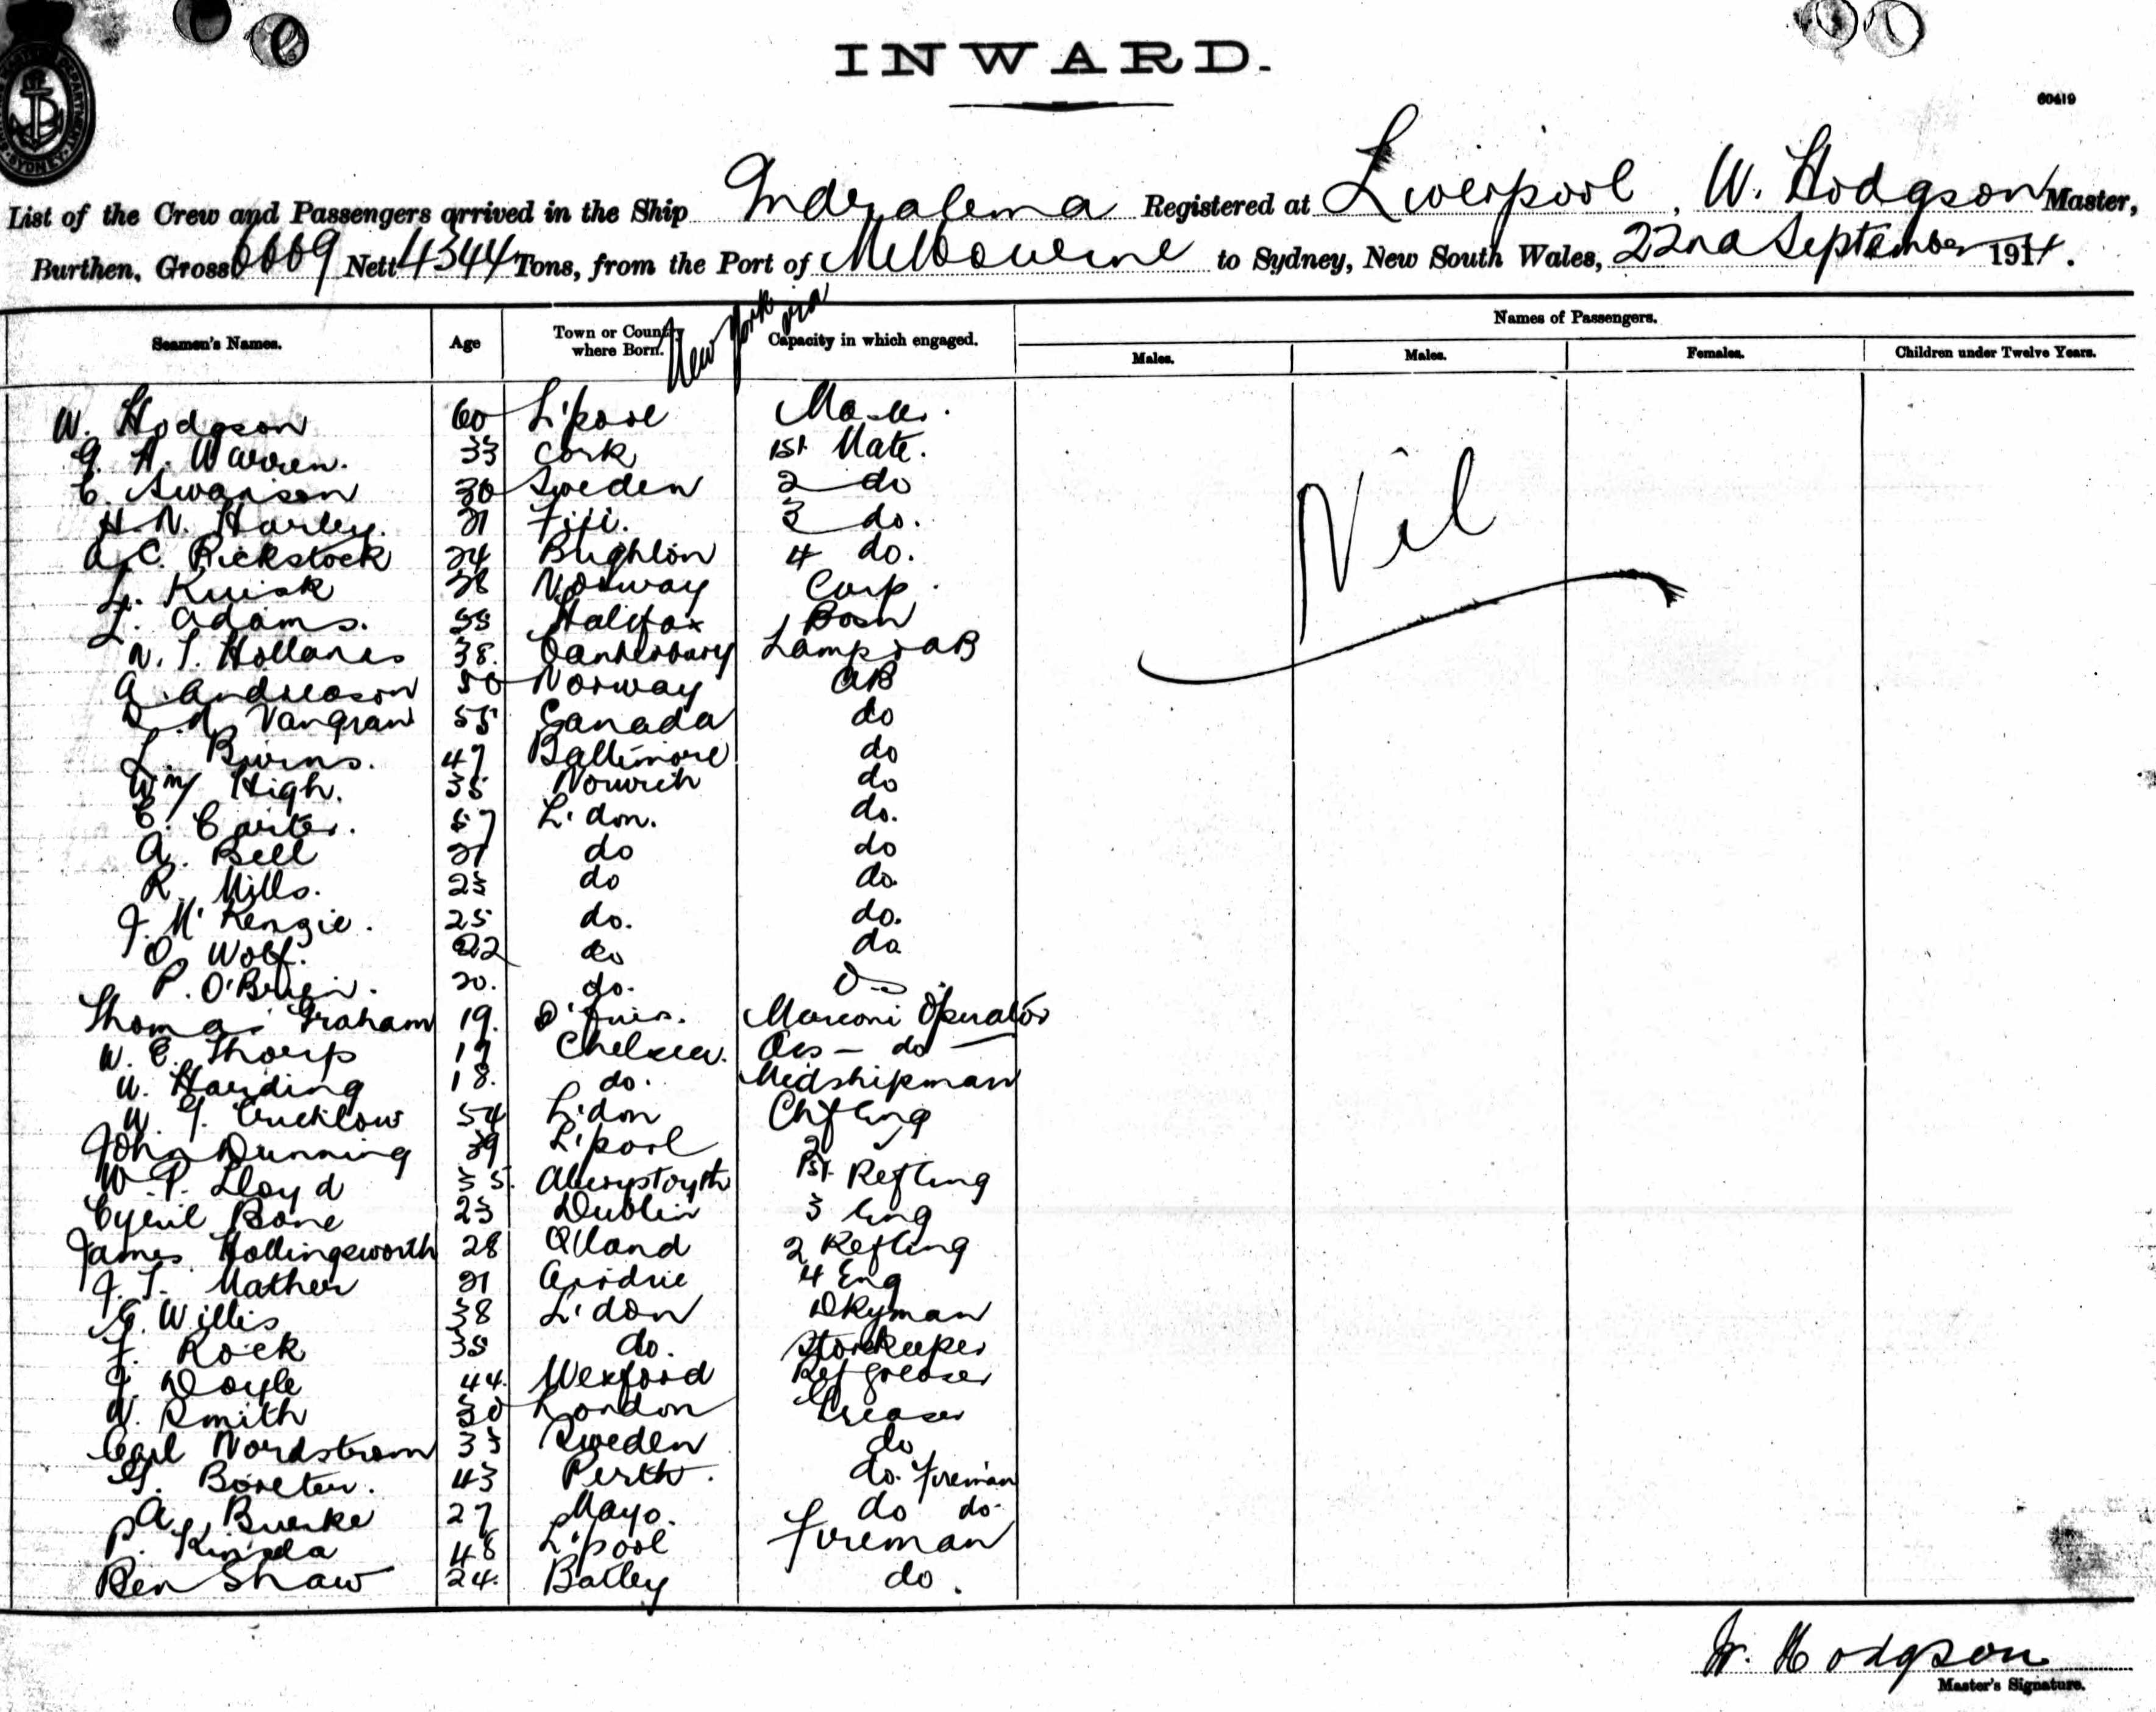 INWARD.
60419
List of the Crew and Passengers arrived in the Ship Indralema Registered at Liverpool, W. Hodgson Master,
Burthen, Gross Nett 4344 Tons, from the Port of Melbourne to Sydney, New South Wales, 22nd September 1914.
New York via
Seamen's Names. Age Town or Country where Born. Capacity in which engaged. Names of Passengers.
Males. Males. Females. Children under Twelve Years.
W. Hodgson 60 L'pool Master.
G. H. Warren. 33 Cork 1st Mate.
C. Swanson 30 Sweden 2 do
H. N. Harley. 21 Fiji. 3 do.
A. C. Rickstock 24 Brighton 4 do.
L. Kuisk 38 Norway Carp.
J. Adams. 55 Halifax Bosn
38. Canterbury Lamps & AB
A. Andreason 50 Norway AB
Vangraw 55 Canada do
L. Burns. 47 Baltimore do
Wm High. 35 Norwich do
C. Carter. 57 L'don. do.
A. Bell 21 do do
R. Mills. 23 do do.
J. McKenzie. 25 do. do.
O. Wolf. 22 do do
P. O'Brien. 20. do.
Thomas Graham 19. Marconi Operator
W. E. Thorp 19 Chelsea. Ass - do
W. Harding 18. do. Midshipman
54 L'don Chf Eng
John Dunning 39 L'pool 2
W. P. Lloyd 35. Aberystoyth 1st Ref Eng
Cyril Bone 23 Dublin 3 Eng
James Hollingsworth 28 Olland 2 Ref Eng
J. T. Mather 21 Airdrie 4 Eng
G. Willis 38 L'don Dkyman
F. Rock 38 do. Storekeeper
J. Doyle 44. Wexford Ref greaser
W. Smith 30 London Greaser
Carl Nordstrom 33 Sweden do
43 Perth. do. Fireman
A. Burke 27 Mayo. do do.
P. Kinsela 48 L'pool Fireman
Ben Shaw 24. Batley do.
Nil
W. Hodgson
Master's Signature.